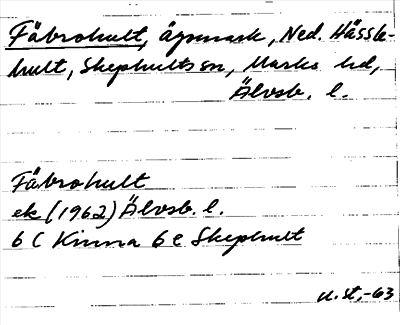 Fäbrohult, ägomark, Ned. Hässle-
hult, Skephults sn, Marks hd,
Älvsb. l.
Fäbrohult
ek (1962) Älvsb. l.
6 C Kinna 6 e Skephult
U. St, -63